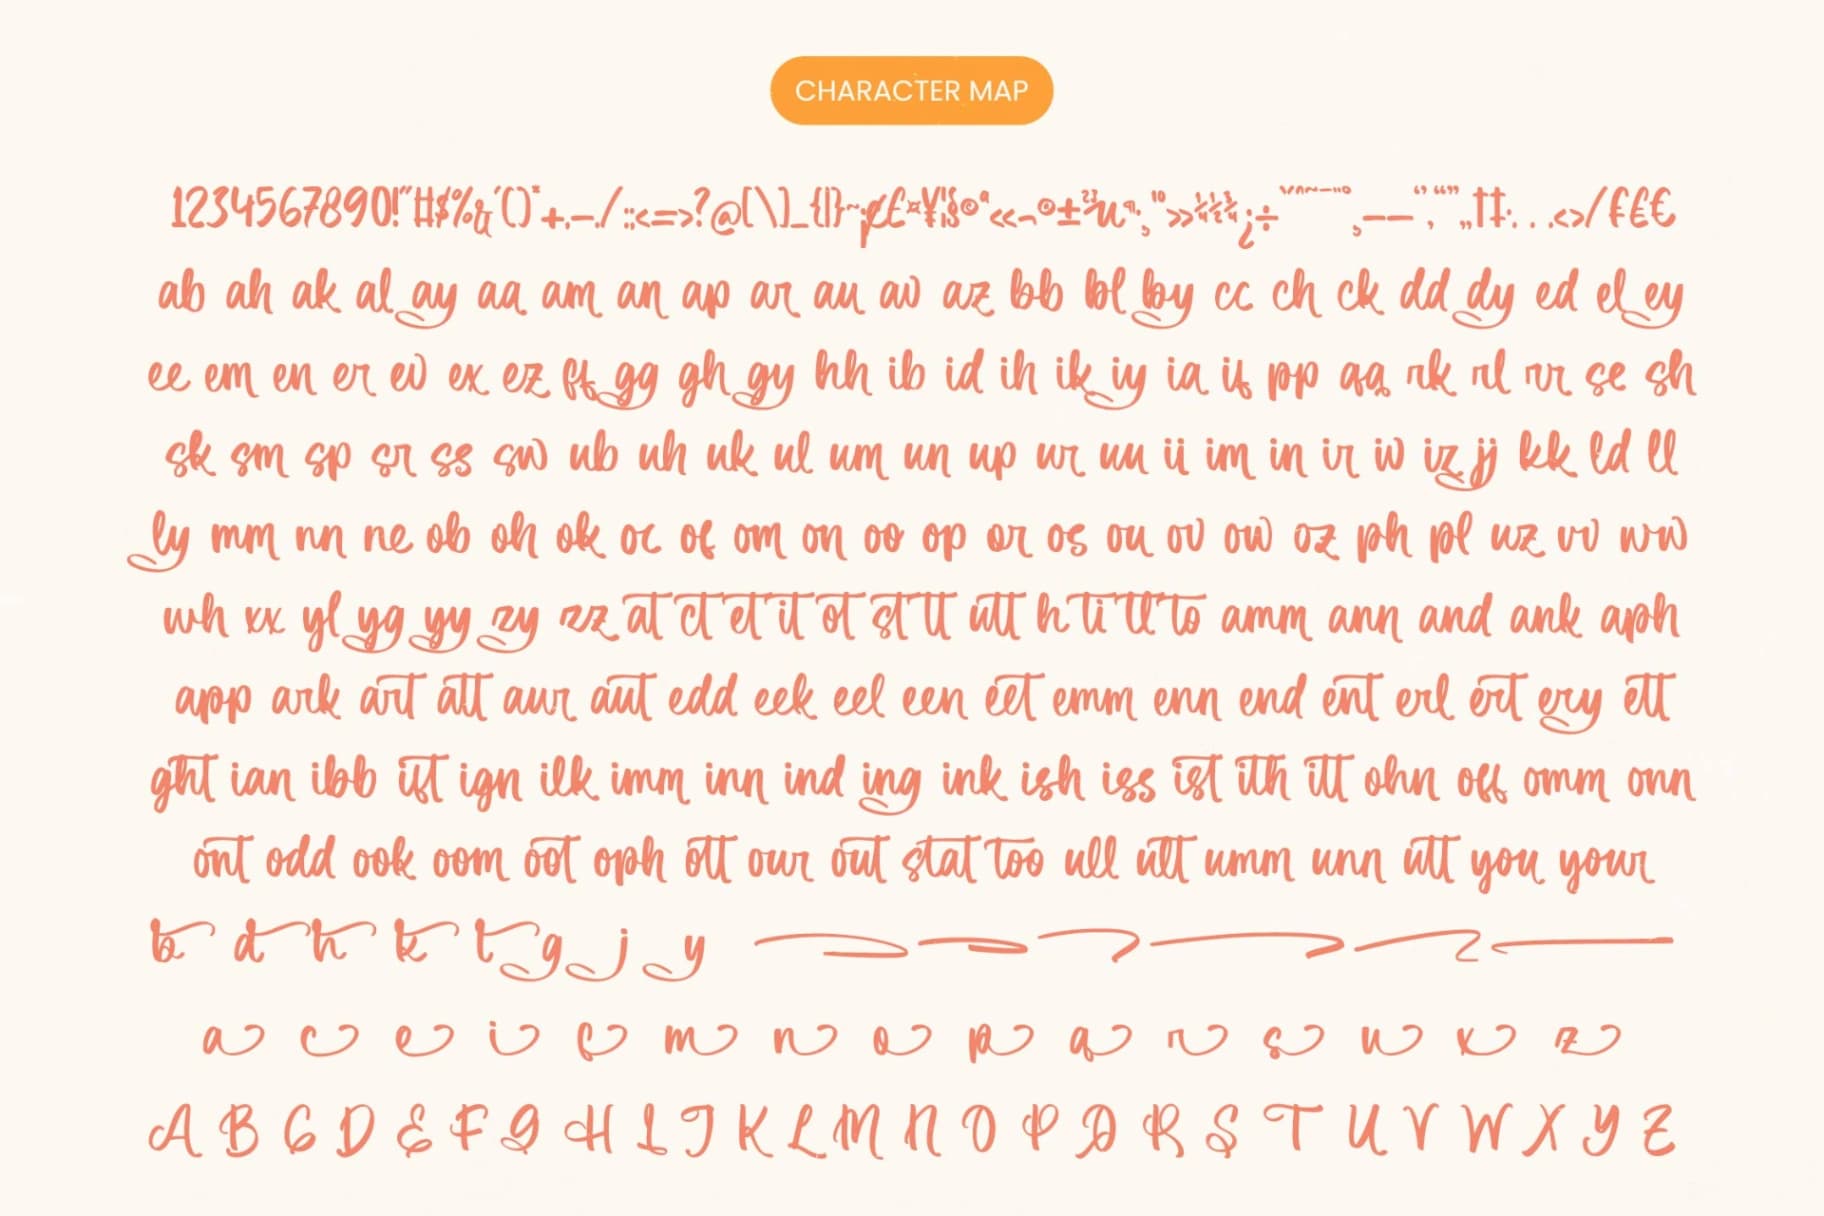 CHARACTER MAP
1234567890!"#$%&'()*+,-./:;<=>?@[\]_{|}~¡¢£¤¥¦§©ª«¬®±²³µ¶·¸¹º»¼½¾¿÷
ab ah ak al ay aa am an ap ar au av az bb bl by cc ch ck dd dy ed el ey
ee em en er ev ex ez ff gg gh gy hh ib id ih ik iy ia if pp qq rk rl rr se sh
sk sm sp sr ss sw ub uh uk ul um un up ur uu ii im in ir iv iz jj kk ld ll
ly mm nn ne ob oh ok oc of om on oo op or os ou ov ow oz ph pl uz vv ww
wh xx yl yg yy zy zz at ct et it ot st tt utt h ti tl to amm ann and ank aph
app ark art att aur aut edd eek eel een eet emm enn end ent erl ert ery ett
ght ian ibb ift ign ilk imm inn ind ing ink ish iss ist ith itt ohn off omm onn
ont odd ook oom oot oph ott our out stat too ull ult umm unn utt you your
b d h k t g j y
a c e i f m n o p q r s u x z
A B C D E F G H I J K L M N O P Q R S T U V W X Y Z